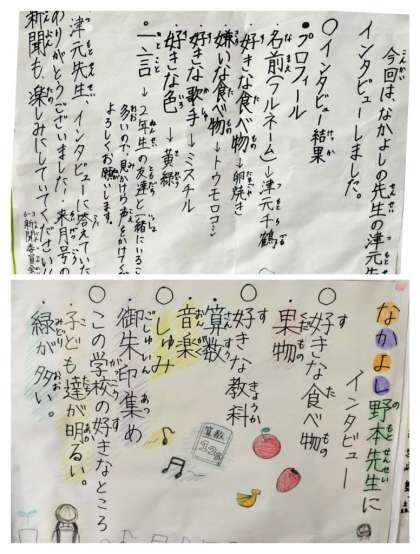 今回は、なかよしの先生の津元先
インタビューしました。
○インタビュー結果
・プロフィール
名前(フルネーム)→津元千鶴
好きな食べ物→卵焼き
嫌いな食べ物→トウモロコシ
好きな歌手→ミスチル
好きな色→黄緑
・一言→2年生の友達と一緒にいるこ
多いので、見かけたら声をかけてくだ
よろしくお願いします。
津元先生、インタビューに答えていた
ありがとうございました!来月号の
新聞も、楽しみにしていてください
なかよし野本先生に
インタビュー
○好きな食べ物
・果物
○好きな教科
・算数
・音楽
○しゅみ
・御朱印集め
○この学校の好きなところ
・子ども達が明るい。
・緑が多い。
算数
123